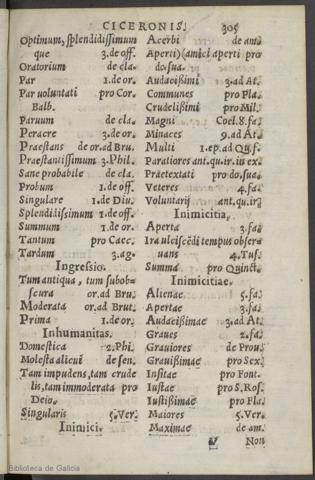 CICERONIS. 305
Optimum, splendidissimum
que 3.de off.
Oratorium de cla.
Par 1.de or.
Par voluntati pro Cor.
Balb.
Paruum de cla.
Peracre 3.de or.
Praestans de or.ad Bru.
Praestantissimum 3.Phil.
Sane probabile de cla.
Probum 1.de off.
Singulare 1.de Diu.
Splendidissimum 1.de off.
Summum 1.de or.
Tantum pro Caec.
Tardum 3.ag.
Ingressio.
Tum antiqua, tum subob-
scura or.ad Bru.
Moderata or.ad Brut.
Prima 1.de or.
Inhumanitas.
Domestica 2.Phi.
Molesta alicui de sen.
Tam impudens, tam crude
lis, tam immoderata pro
Deio.
Singularis 5.Ver.
Inimici.
Acerbi de am.
Aperti) (amici aperti pro
do.sua.
Audacissimi 3.ad At.
Communes pro Pla.
Crudelissimi pro Mil.
Magni Coel.8.fa.
Minaces 9.ad At.
Multi 1.ep.ad Qu.f.
Paratiores ant.qu.ir.in ex.
Praetextati pro do.sua.
Veteres 4.fa.
Voluntarij ant.qu.ir.
Inimicitia.
Aperta 3.fa.
Ira ulciscēdi tempus obser-
uans 4.Tus.
Summa pro Quinct.
Inimicitiae.
Alienae 5.fa.
Apertae 3.fa.
Audacissimae 3.ad At.
Graues 2.fa.
Grauiores de Prou.
Grauissimae pro Sex.
Insitae pro Font.
Iustae pro S.Ros.
Iustissimae pro Fla.
Maiores 5.Ver.
Maximae de am.
V Non
Biblioteca de Galicia